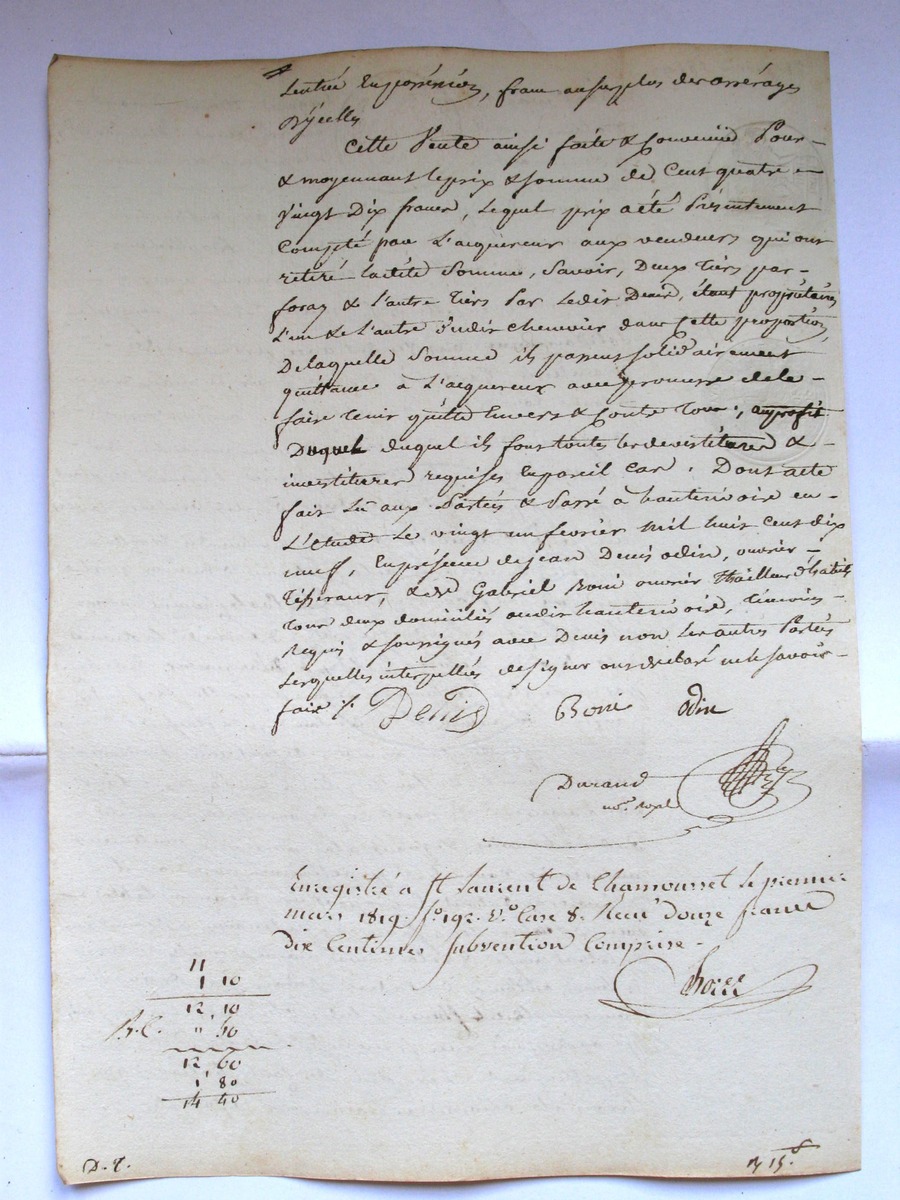 l'entrée en possession, franc au surplus des arrérages
d'ycelle
Cette Vente ainsi faite & convenüe Pour
& moyennant le prix & somme de Cent quatre
Vingt Dix francs, Lequel prix a été Présentement
Compté par L'acquereur aux vendeurs qui ont
retiré ladite Somme, Savoir, Deux tiers par
foray & L'autre tiers Par Ledit Denis, étant propriétaires
L'un & L'autre dudit chenevier dans Cette proportion,
De laquelle Somme ils passent solidairement
quittance à L'acquereur avec promesse de le
faire tenir quitte Envers & Contre Tous, au profit
Duquel duquel ils font toutes les devestitures &
investitures requises En pareil cas. Dont acte
fait Lu aux Parties & Passé à hauterivoire en
L'étude Le vingt un fevrier mil huit Cent dix
neuf, En présence de jean Denis odin, ouvrier
Tisserand, & de Gabriel Boni ouvrier Thailleur d'habits
tous deux domiciliés audit hauterivoire, Témoins
Requis & soussignés avec Denis non Les autres Parties
Lesquelles interpellées de signer ont déclaré ne le savoir
faire /. Denis Boni Odin
Durand
no.re royal
Enregistré a St Laurent de Chamousset le premier
mars 1819. fo. 192. Vo. Case 8. Reçu douze francs
dix Centimes Subvention Comprise
11
1 10
12, 10
" 50
12, 60
1, 80
14 40